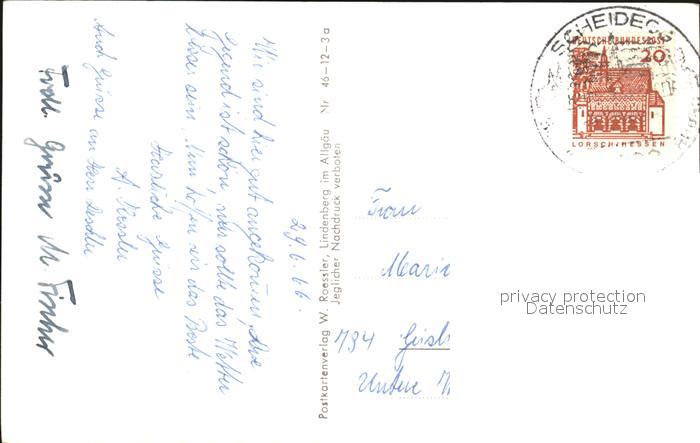 29.6.66.
Wir sind hier gut angekommen, die
Gegend ist schön, nur sollte das Wetter
besser sein. Nun hoffen wir das Beste.
Herzliche Grüsse
A. Kessler
Auch Grüsse an Herr
Frdl. Grüsse M. Fischer
Postkartenverlag W. Roessler, Lindenberg im Allgäu Nr 46-12-3a
Jeglicher Nachdruck verboten
SCHEIDEGG
DEUTSCHE BUNDESPOST
20
LORSCH/HESSEN
Frau
Marie
734 Geisl
Untere
privacy protection
Datenschutz